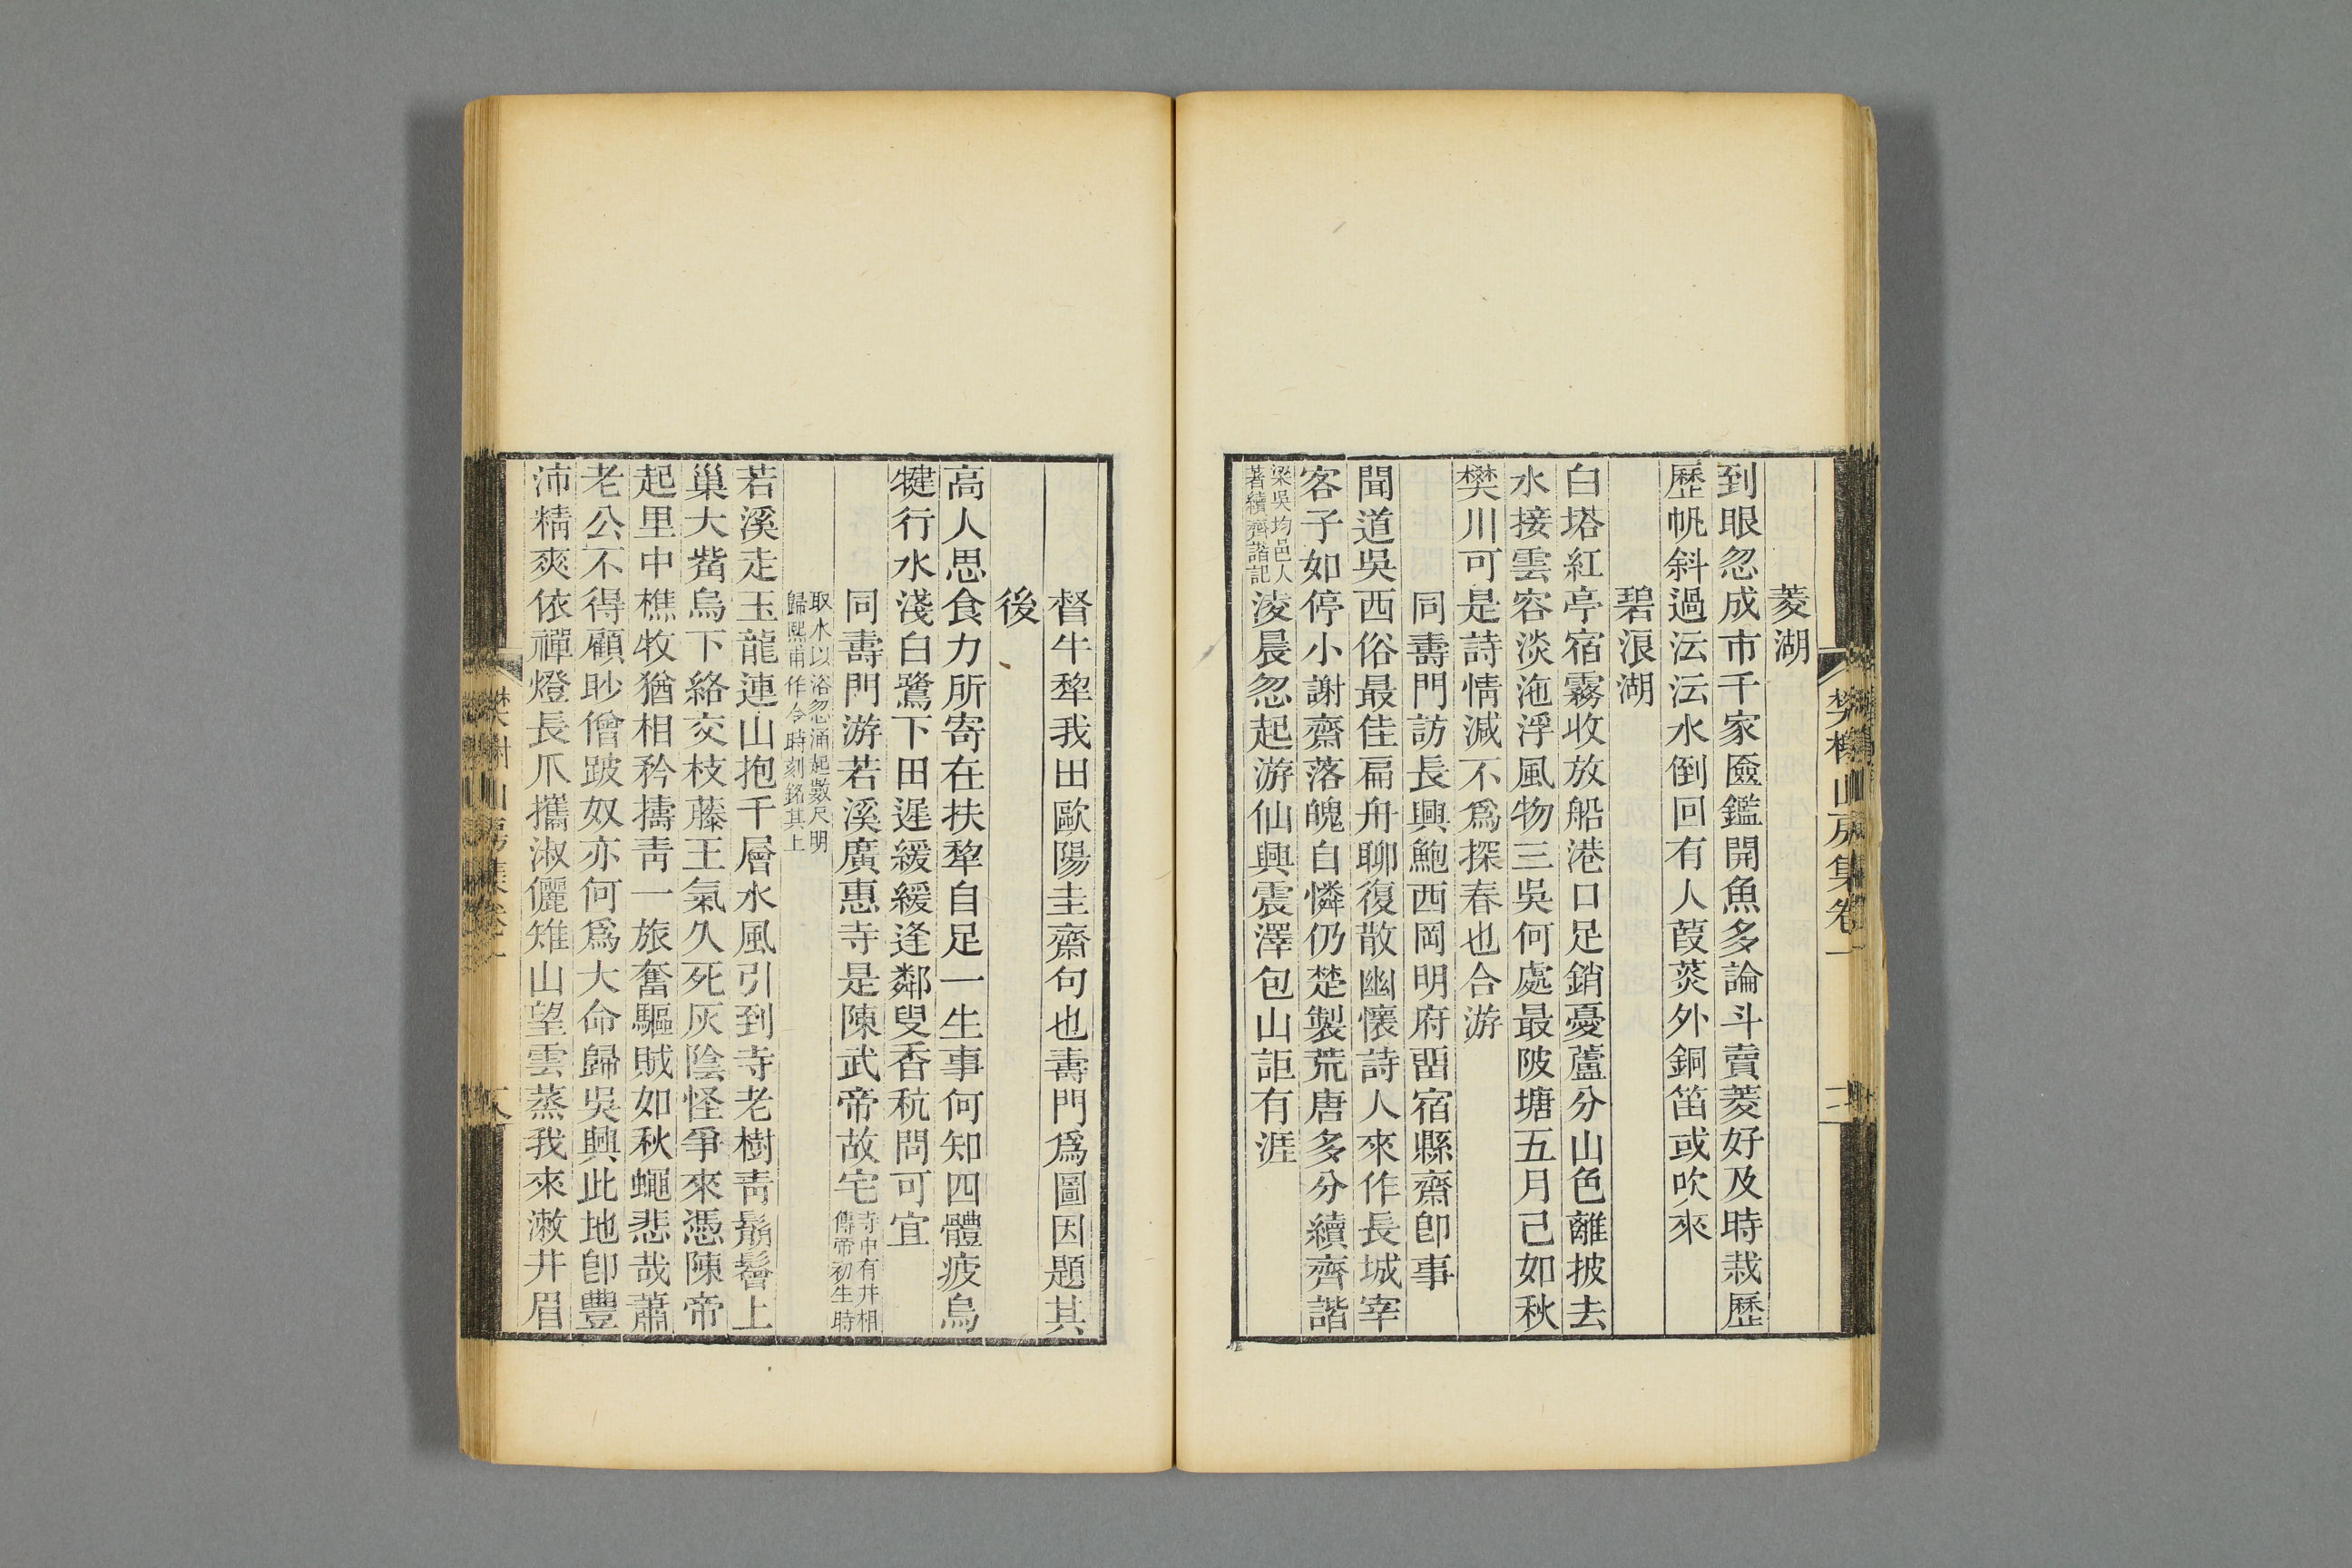 菱湖
到眼忽成市千家匳鑑開魚多論斗賣菱好及時栽歷
歷帆斜過沄沄水倒回有人葭菼外銅笛或吹來
碧浪湖
白塔紅亭宿霧收放船港口足銷憂蘆分山色離披去
水接雲容淡沲浮風物三吳何處最陂塘五月已如秋
樊川可是詩情減不爲探春也合游
同壽門訪長興鮑西岡明府畱宿縣齋卽事
聞道吳西俗最佳扁舟聊復散幽懷詩人來作長城宰
客子如停小謝齋落魄自憐仍楚製荒唐多分續齊諧
梁吳均邑人
著續齊諧記
淩晨忽起游仙興震澤包山詎有涯
督牛犂我田歐陽圭齋句也壽門爲圖因題其
後
高人思食力所寄在扶犂自足一生事何知四體疲烏
犍行水淺白鷺下田遲緩緩逢鄰叟香秔問可宜
同壽門游若溪廣惠寺是陳武帝故宅
寺中有井相
傳帝初生時
取水以浴忽涌起數尺明
歸熙甫作令時刻銘其上
若溪走玉龍連山抱千層水風引到寺老樹靑鬅鬙上
巢大觜烏下絡交枝藤王氣久死灰陰怪爭來憑陳帝
起里中樵牧猶相矜擣靑一旅奮驅賊如秋蠅悲哉蕭
老公不得顧眇僧跛奴亦何爲大命歸吳興此地卽豐
沛精爽依禪燈長爪攜淑儷雉山望雲蒸我來漱井眉
樊榭山房集卷一